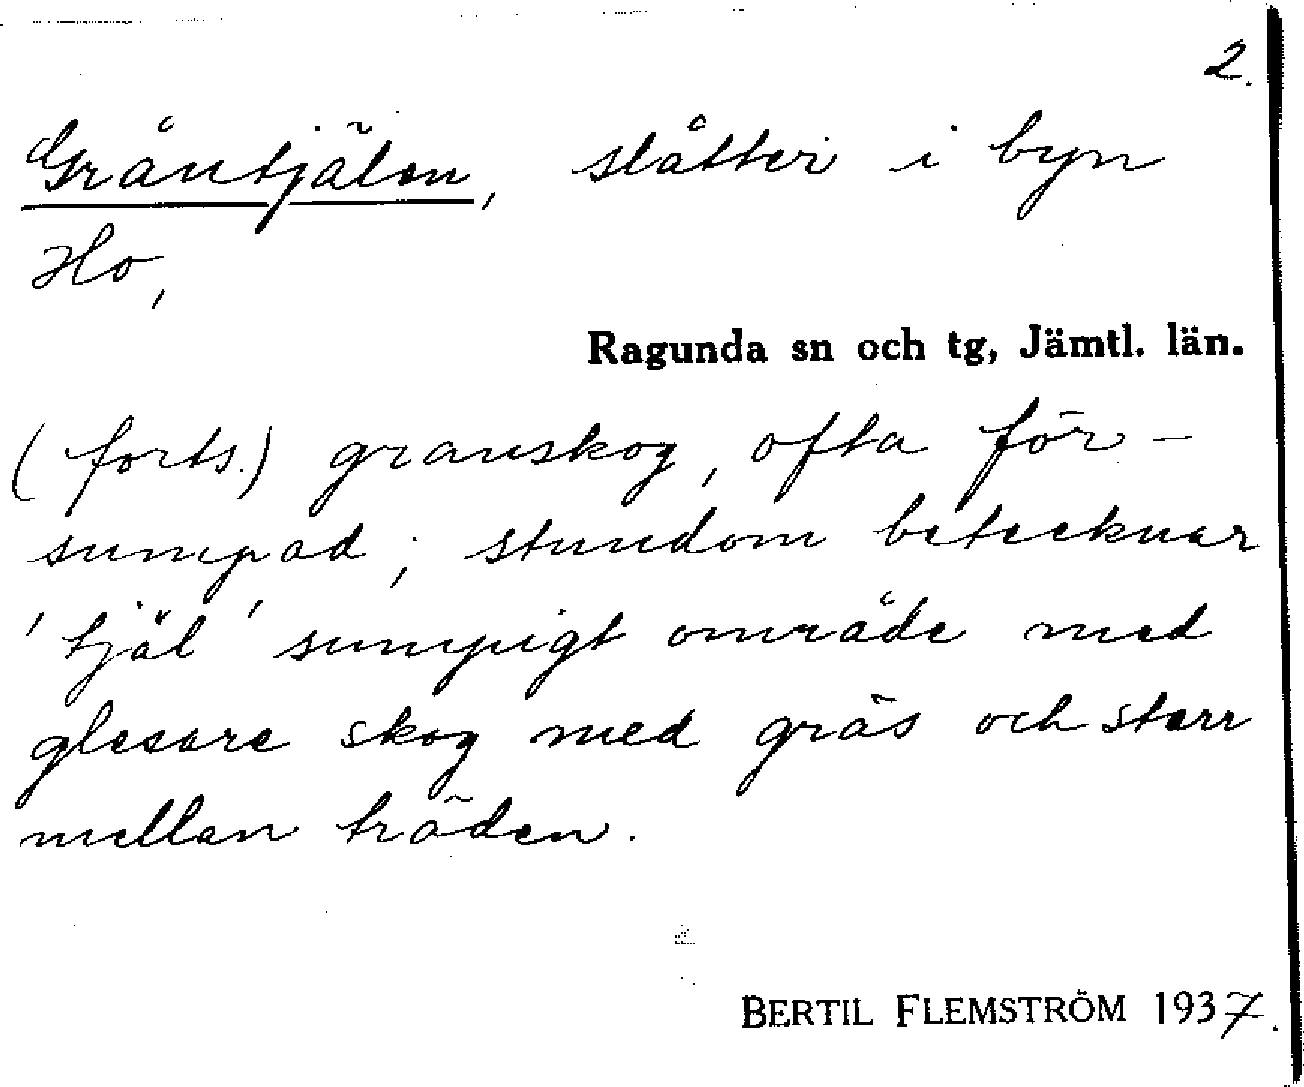 2.
Gråntjälen, slåtter i byn
Ho,
Ragunda sn och tg, Jämtl. län.
(forts.) granskog, ofta för-
sumpad; stundom betecknar
'tjäl' sumpigt område med
glesare skog med gräs och starr
mellan träden.
BERTIL FLEMSTRÖM 1937.